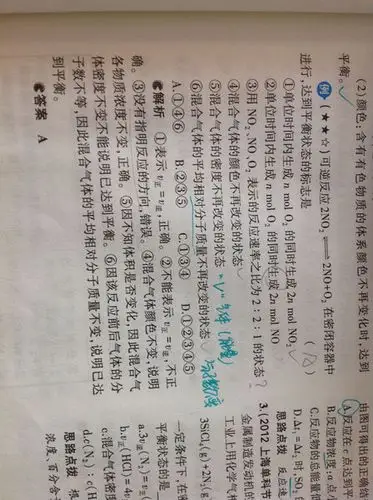 (2)颜色:含有有色物质的体系颜色不再变化时,达到
平衡。
例 (★★☆)可逆反应 2NO₂ ⇌ 2NO+O₂ 在密闭容器中
进行,达到平衡状态的标志是 ( A )
①单位时间内生成 n mol O₂ 的同时生成 2n mol NO₂
②单位时间内生成 n mol O₂ 的同时生成 2n mol NO
③用 NO₂、NO、O₂ 表示的反应速率之比为 2:2:1 的状态?
④混合气体的颜色不再改变的状态
⑤混合气体的密度不再改变的状态
⑥混合气体的平均相对分子质量不再改变的状态
A.①④⑥ B.②③⑤ C.①③④ D.①②③④⑤
解析 ①表示 v正=v逆,正确。②不能表示 v正=v逆,不正
确。③没有指明反应的方向,错误。④混合气体颜色不变,说明
各物质浓度不变,正确。⑤因不知体积是否变化,因此混合气
体密度不变不能说明已达到平衡。⑥因该反应前后气体的分
子数不等,因此混合气体的平均相对分子质量不变,说明已达
到平衡。
答案 A
由图可得出的正确结
A.反应在 c 点达到
B.反应物浓度:a 点
C.反应物的总能量
D.Δt₁=Δt₂ 时,SO₂
思路点拨 反
3.(2012 上海单科节
金属制造发动机的
工业上用化学气相
3SiCl₄(g)+2N₂(g
一定条件下,在密
平衡状态的是
a.3v逆(N₂)=v正
b.v正(HCl)=4v
c.混合气体密度
d.c(N₂):c(H
思路点拨
浓度、百分含